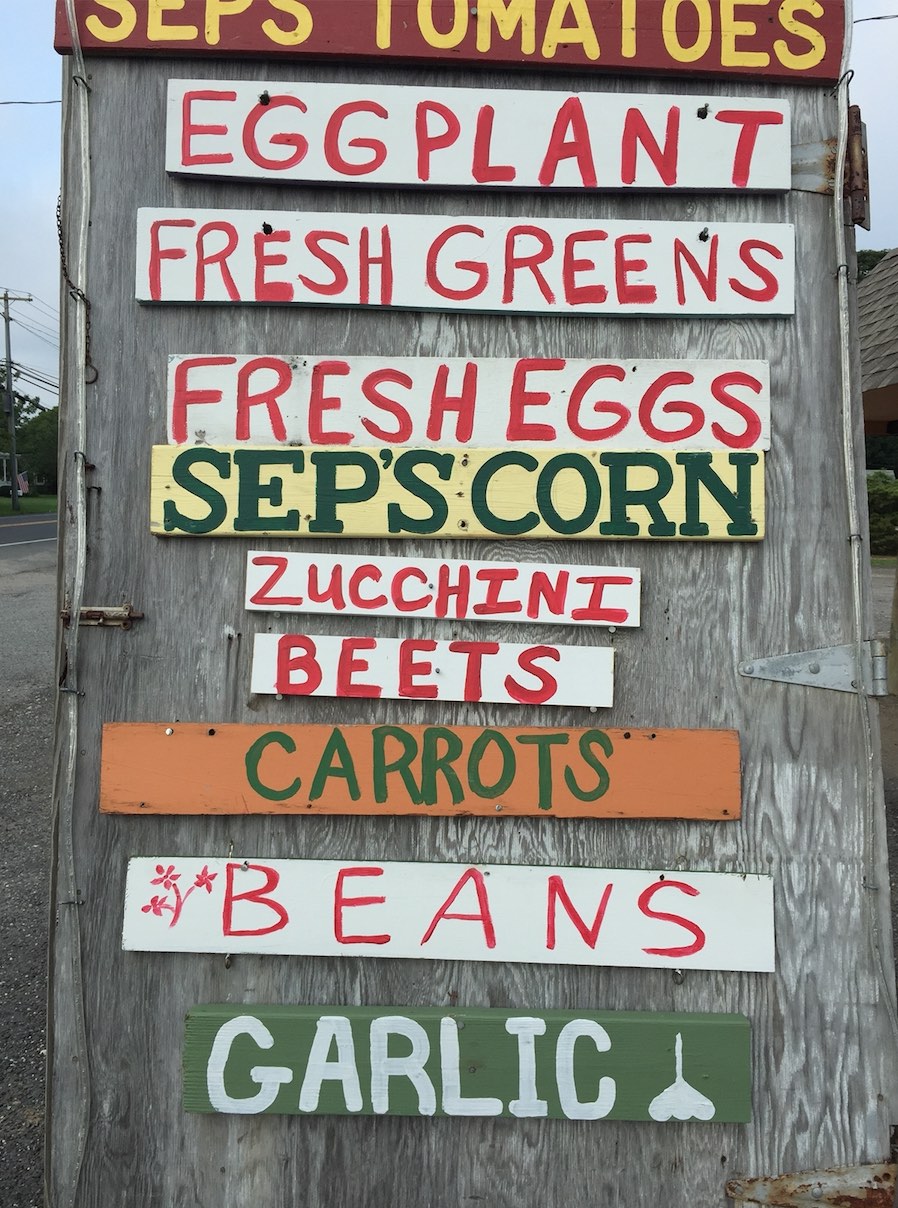 SEPS TOMATOES
EGGPLANT
FRESH GREENS
FRESH EGGS
SEP'S CORN
ZUCCHINI
BEETS
CARROTS
BEANS
GARLIC